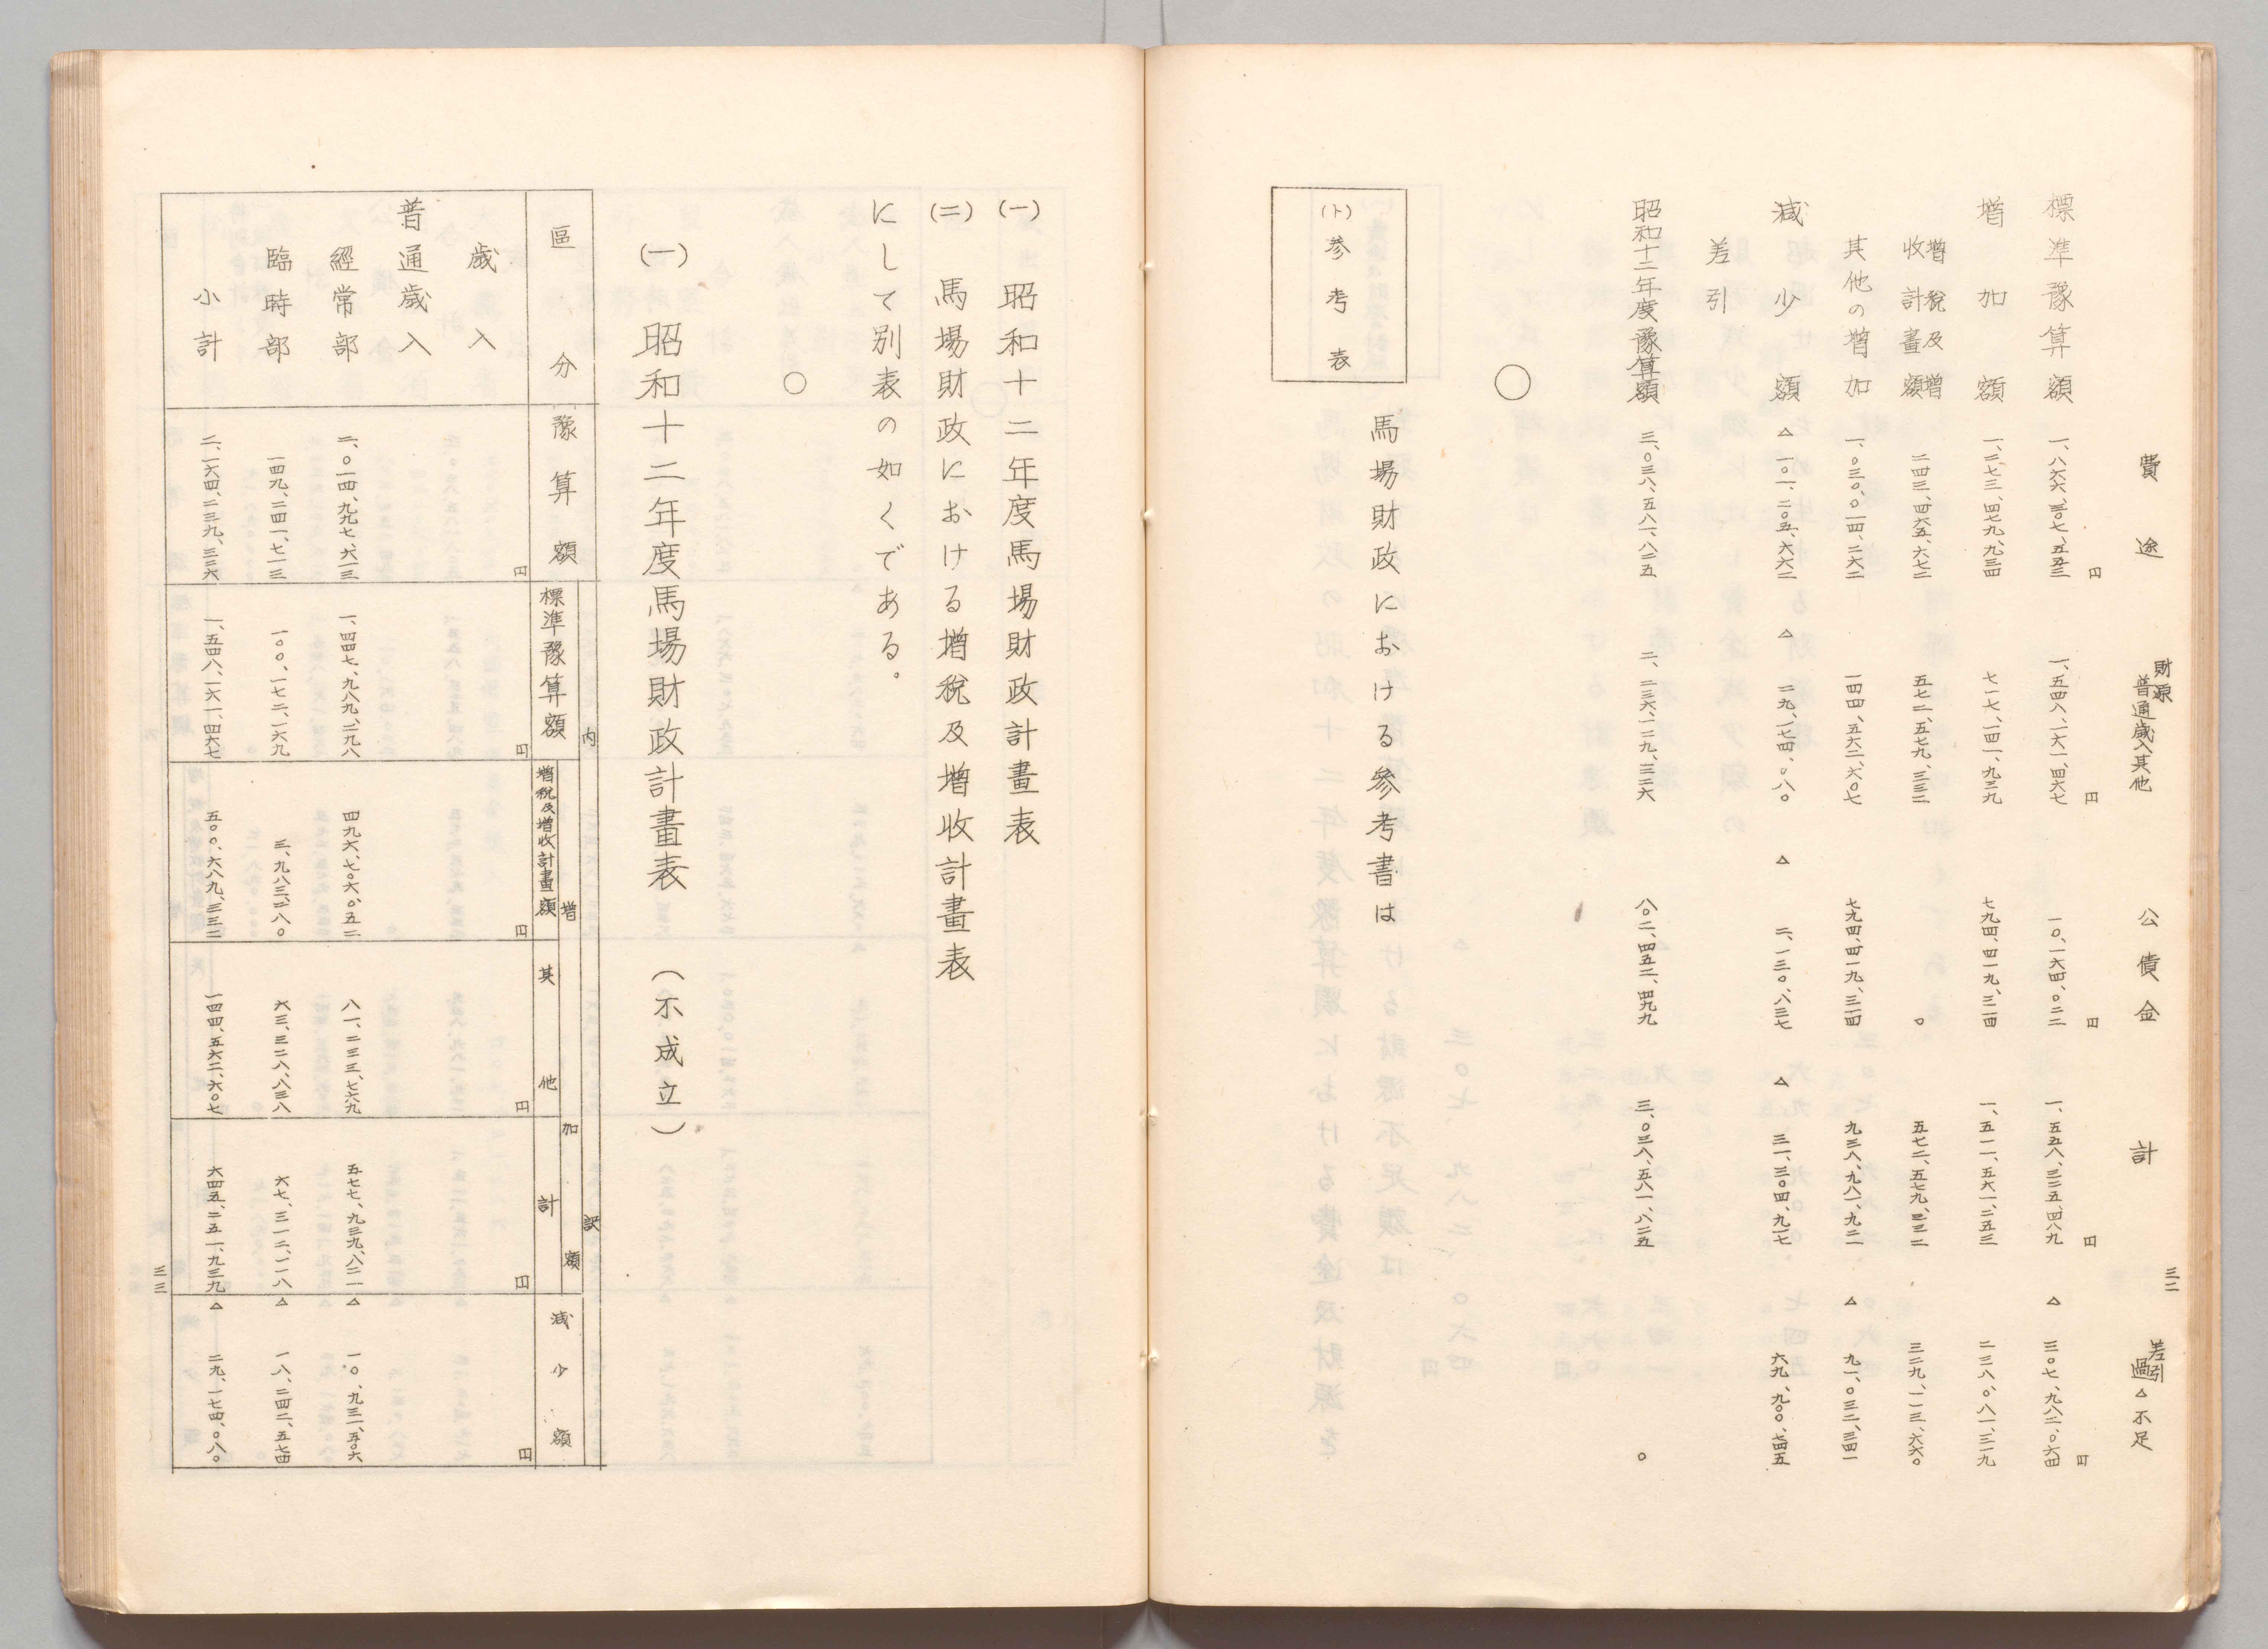 三二
費途 財源 普通歳入其他 公債金 計 差引過△不足
円 円 円 円 円
標準豫算額 一、八六六、三〇七、五五三 一、五四八、一六一、四六七 一〇、一六四、〇二二 一、五五八、三二五、四八九 △ 三〇七、九八二、〇六四
増加額 一、二七三、四七九、九三四 七一七、一四一、九三九 七九四、四一九、三一四 一、五一一、五六一、二五三 二三八、〇八一、三一九
増税及増收計畫額 二四三、四六五、六七二 五七二、五七九、三三二 〇 五七二、五七九、三三二 三二九、一一三、六六〇
其他の増加 一、〇三〇、〇一四、二六二 一四四、五六二、六〇七 七九四、四一九、三一四 九三八、九八一、九二一 △ 九一、〇三二、三四一
減少額 △ 一〇一、二〇五、六六二 △ 二九、一七四、〇八〇 △ 二、一三〇、八三七 △ 三一、三〇四、九一七 六九、九〇〇、七四五
差引
昭和十二年度豫算額 三、〇三八、五八一、八二五 二、二三六、一二九、三二六 八〇二、四五二、四九九 三、〇三八、五八一、八二五 〇
○
(ト)參考表
馬場財政における參考書は
(一) 昭和十二年度馬場財政計畫表
(二) 馬場財政における増税及増收計畫表
にして別表の如くである。
○
(一) 昭和十二年度馬場財政計畫表 (不成立)
區分 豫算額 内訳
標準豫算額 増加額 減少額
増税及増收計畫額 其他 計
円 円 円 円 円 円
歳入
普通歳入
經常部 二、〇一四、九九七、六一三 一、四四七、九八九、二九八 四九六、七〇六、〇五二 八一、二三三、七六九 五七七、九三九、八二一 △ 一〇、九三一、五〇六
臨時部 一四九、二四一、七一三 一〇〇、一七二、一六九 三、九八三、二八〇 六三、三二八、八三八 六七、三一二、一一八 △ 一八、二四二、五七四
小計 二、一六四、二三九、三二六 一、五四八、一六一、四六七 五〇〇、六八九、三三二 一四四、五六二、六〇七 六四五、二五一、九三九 △ 二九、一七四、〇八〇
三三